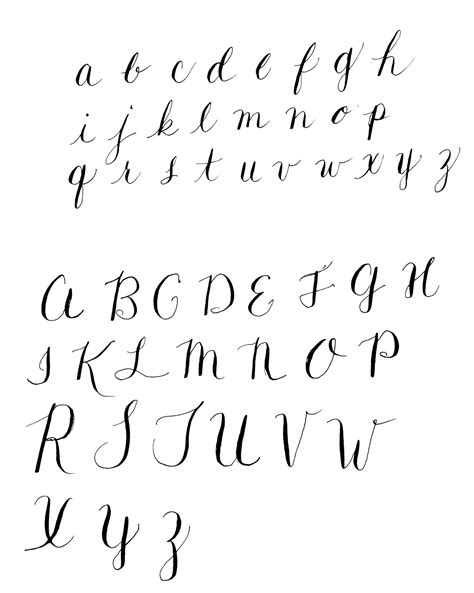 a b c d e f g h
i j k l m n o p
q r s t u v w x y z
A B C D E F G H
I K L M N O P
R S T U V W
X Y Z